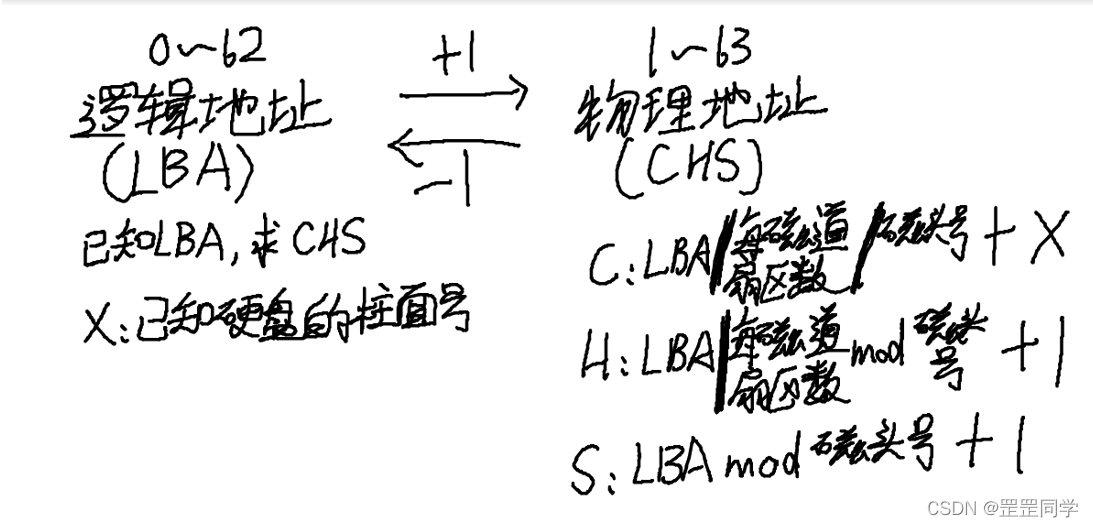 0~62 +1 1~63
逻辑地址 物理地址
(LBA) -1 (CHS)
已知LBA,求CHS
X:已知硬盘的柱面号
C:LBA/每磁道扇区数/磁头号+X
H:LBA/每磁道扇区数 mod 磁头号+1
S:LBA mod 磁头号+1
CSDN @罡罡同学